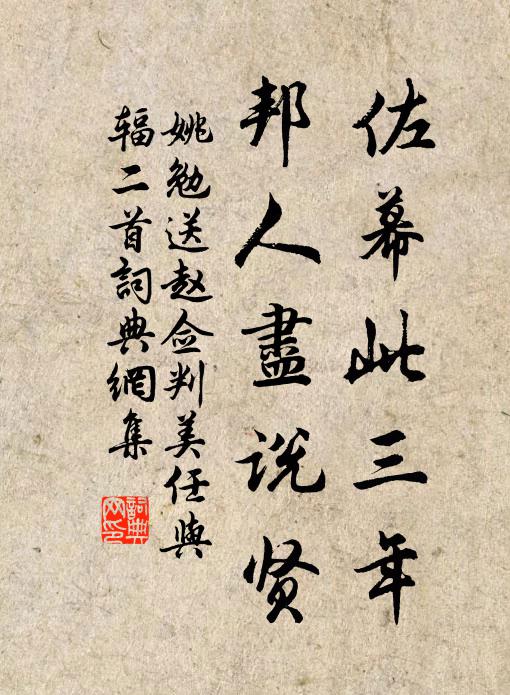 佐幕此三年
邦人盡説贤
姚勉送赵佥判美任與
辐二首詞典網集
詞典網印